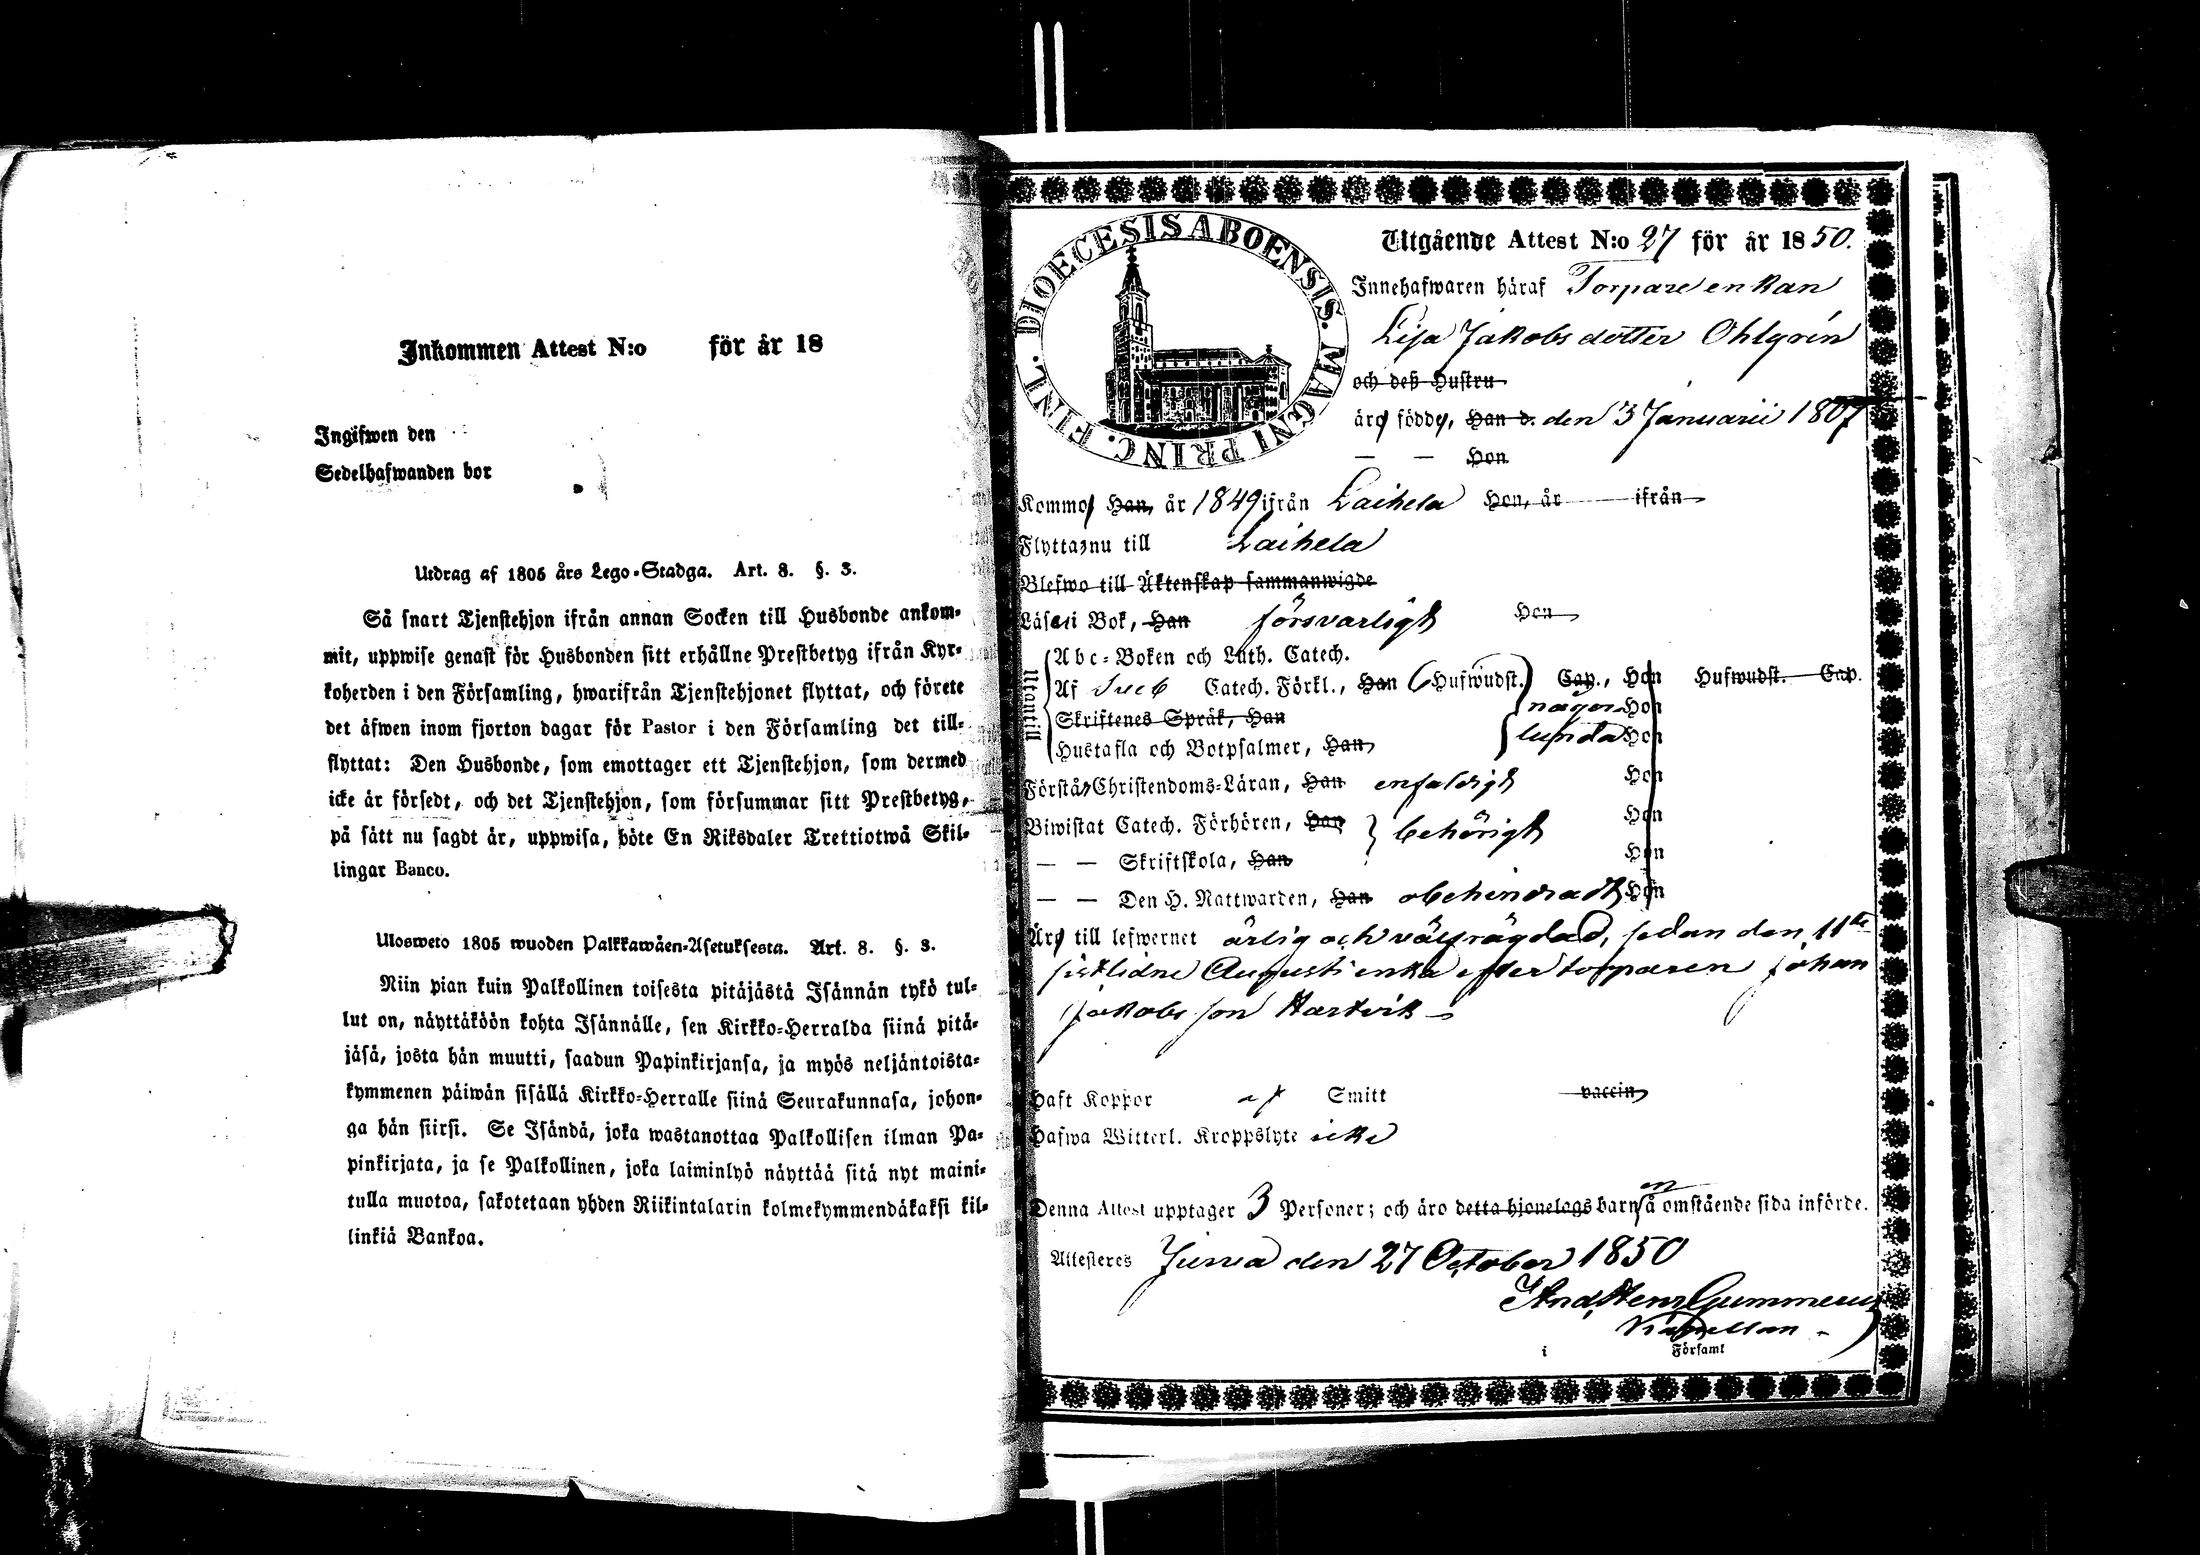 Inkommen Attest N:o för år 18
Ingifwen den
Sedelhafwanden bor
Utdrag af 1805 års Lego-Stadga. Art. 8. §. 3.
Så snart Tjenstehjon ifrån annan Socken till Husbonde ankom-
mit, uppwise genast för Husbonden sitt erhållne Prestbetyg ifrån Kyr-
koherden i den Församling, hwarifrån Tjenstehjonet flyttat, och förete
det äfwen inom fjorton dagar för Pastor i den Församling det till-
flyttat: Den Husbonde, som emottager ett Tjenstehjon, som dermed
icke är försedt, och det Tjenstehjon, som försummar sitt Prestbetyg,
på sätt nu sagdt är, uppwisa, böte En Riksdaler Trettiotwå Skil-
lingar Banco.
Ulosweto 1805 wuoden Palkkawäen-Asetuksesta. Art. 8. §. 3.
Niin pian kuin Palkollinen toisesta pitäjästä Isännän tykö tul-
lut on, näyttäköön kohta Isännälle, sen Kirkko-Herralda siinä pitä-
jäsä, josta hän muutti, saadun Papinkirjansa, ja myös neljäntoista-
kymmenen päiwän sisällä Kirkko-Herralle siinä Seurakunnasa, johon-
ga hän siirsi. Se Isändä, joka wastanottaa Palkollisen ilman Pa-
pinkirjata, ja se Palkollinen, joka laiminlyö näyttää sitä nyt maini-
tulla muotoa, sakotetaan yhden Riikintalarin kolmekymmendäkaksi kil-
linkiä Bankoa.
DIOECESIS ABOENSIS. MAGNI PRINC. FINL.
Utgående Attest N:o 27 för år 1850.
Innehafwaren häraf Torpare enkan
Lisa Jakobsdotter Ohlgrén
och deß Hustru
äro födde, Han d. den 3 Januarii 1807
— — Hon
Kommo Han, år 1849 ifrån Laihela Hon, år ifrån
Flytta nu till Laihela
Blefwo till Äktenskap sammanwigde
Läser i Bok, Han försvarligt Hon
Utantill
Abc-Boken och Luth. Catech.
Af Sveb Catech. Förkl., Han (Hufwudst.) Cap., Hon Hufwudst. Cap.
Skriftenes Språk, Han någorl Hon
Hustafla och Botpsalmer, Han lunda Hon
Förstår Christendoms-Läran, Han enfaldigt Hon
Biwistat Catech. Förhören, Han behörigt Hon
— — Skriftskola, Han Hon
— — Den H. Nattwarden, Han obehindradt Hon
Äro till lefwernet ärlig och välfrägdad, sedan den 11te
sistlidne Augusti enka efter torparen Johan
Jakobsson Hartvik
Haft Koppor af Smitt vaccin
Hafwa Witterl. Kroppslyte icke
Denna Attest upptager 3 Personer; och äro detta hjonelags barn å omstående sida införde.
Attesteres Jurva den 27 October 1850
And. Henr. Gummerus
Kapellan
i Församl